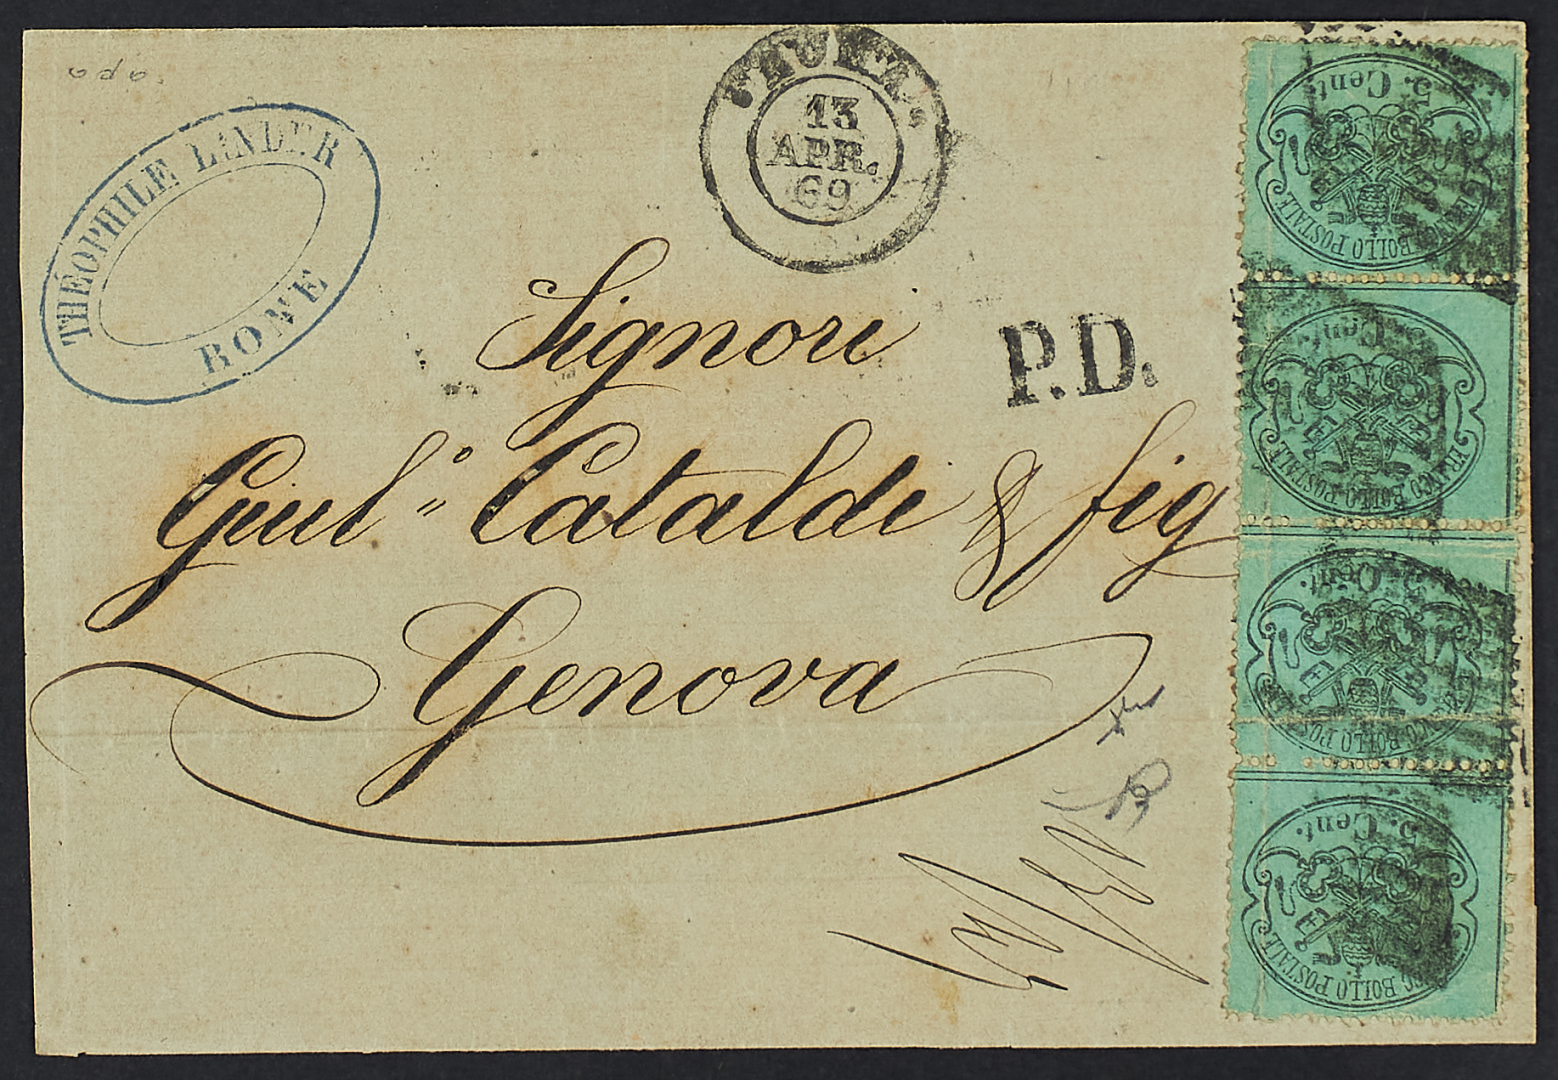 THÉOPHILE LINDER
ROME
ROMA
13
APR.
69
P.D.
Signori
Giul.º Cataldi & fig
Genova
5. Cent.
FRANCO BOLLO POSTALE
5. Cent.
FRANCO BOLLO POSTALE
5. Cent.
FRANCO BOLLO POSTALE
5. Cent.
FRANCO BOLLO POSTALE